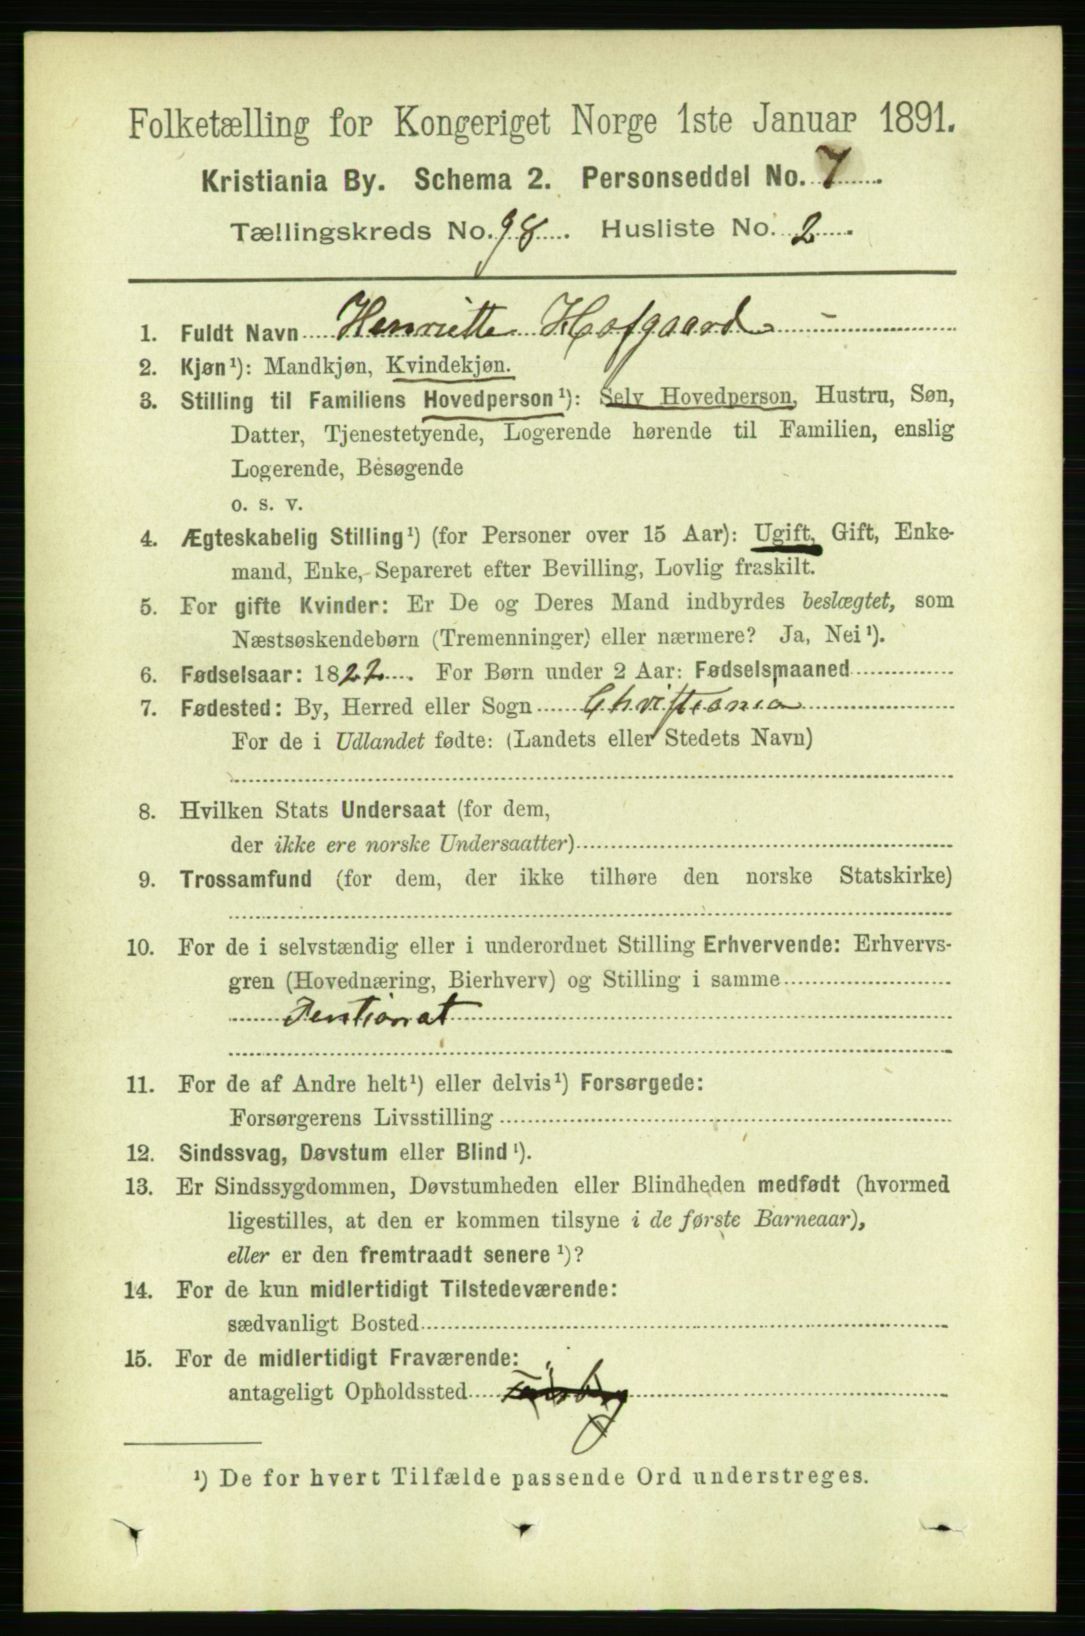 Folketælling for Kongeriget Norge 1ste Januar 1891.
Kristiania By. Schema 2. Personseddel No. 7.
Tællingskreds No. 98. Husliste No. 2.
1. Fuldt Navn Henriette Hofgaard
2. Kjøn¹): Mandkjøn, Kvindekjøn.
3. Stilling til Familiens Hovedperson¹): Selv Hovedperson, Hustru, Søn,
Datter, Tjenestetyende, Logerende hørende til Familien, enslig
Logerende, Besøgende
o. s. v.
4. Ægteskabelig Stilling¹) (for Personer over 15 Aar): Ugift, Gift, Enke-
mand, Enke, Separeret efter Bevilling, Lovlig fraskilt.
5. For gifte Kvinder: Er De og Deres Mand indbyrdes beslægtet, som
Næstsøskendebørn (Tremenninger) eller nærmere? Ja, Nei¹).
6. Fødselsaar: 1822. For Børn under 2 Aar: Fødselsmaaned
7. Fødested: By, Herred eller Sogn Christiania
For de i Udlandet fødte: (Landets eller Stedets Navn)
8. Hvilken Stats Undersaat (for dem,
der ikke ere norske Undersaatter)
9. Trossamfund (for dem, der ikke tilhøre den norske Statskirke)
10. For de i selvstændig eller i underordnet Stilling Erhvervende: Erhvervs-
gren (Hovednæring, Bierhverv) og Stilling i samme
Pentionat
11. For de af Andre helt¹) eller delvis¹) Forsørgede:
Forsørgerens Livsstilling
12. Sindssvag, Døvstum eller Blind¹).
13. Er Sindssygdommen, Døvstumheden eller Blindheden medfødt (hvormed
ligestilles, at den er kommen tilsyne i de første Barneaar),
eller er den fremtraadt senere¹)?
14. For de kun midlertidigt Tilstedeværende:
sædvanligt Bosted
15. For de midlertidigt Fraværende:
antageligt Opholdssted
¹) De for hvert Tilfælde passende Ord understreges.